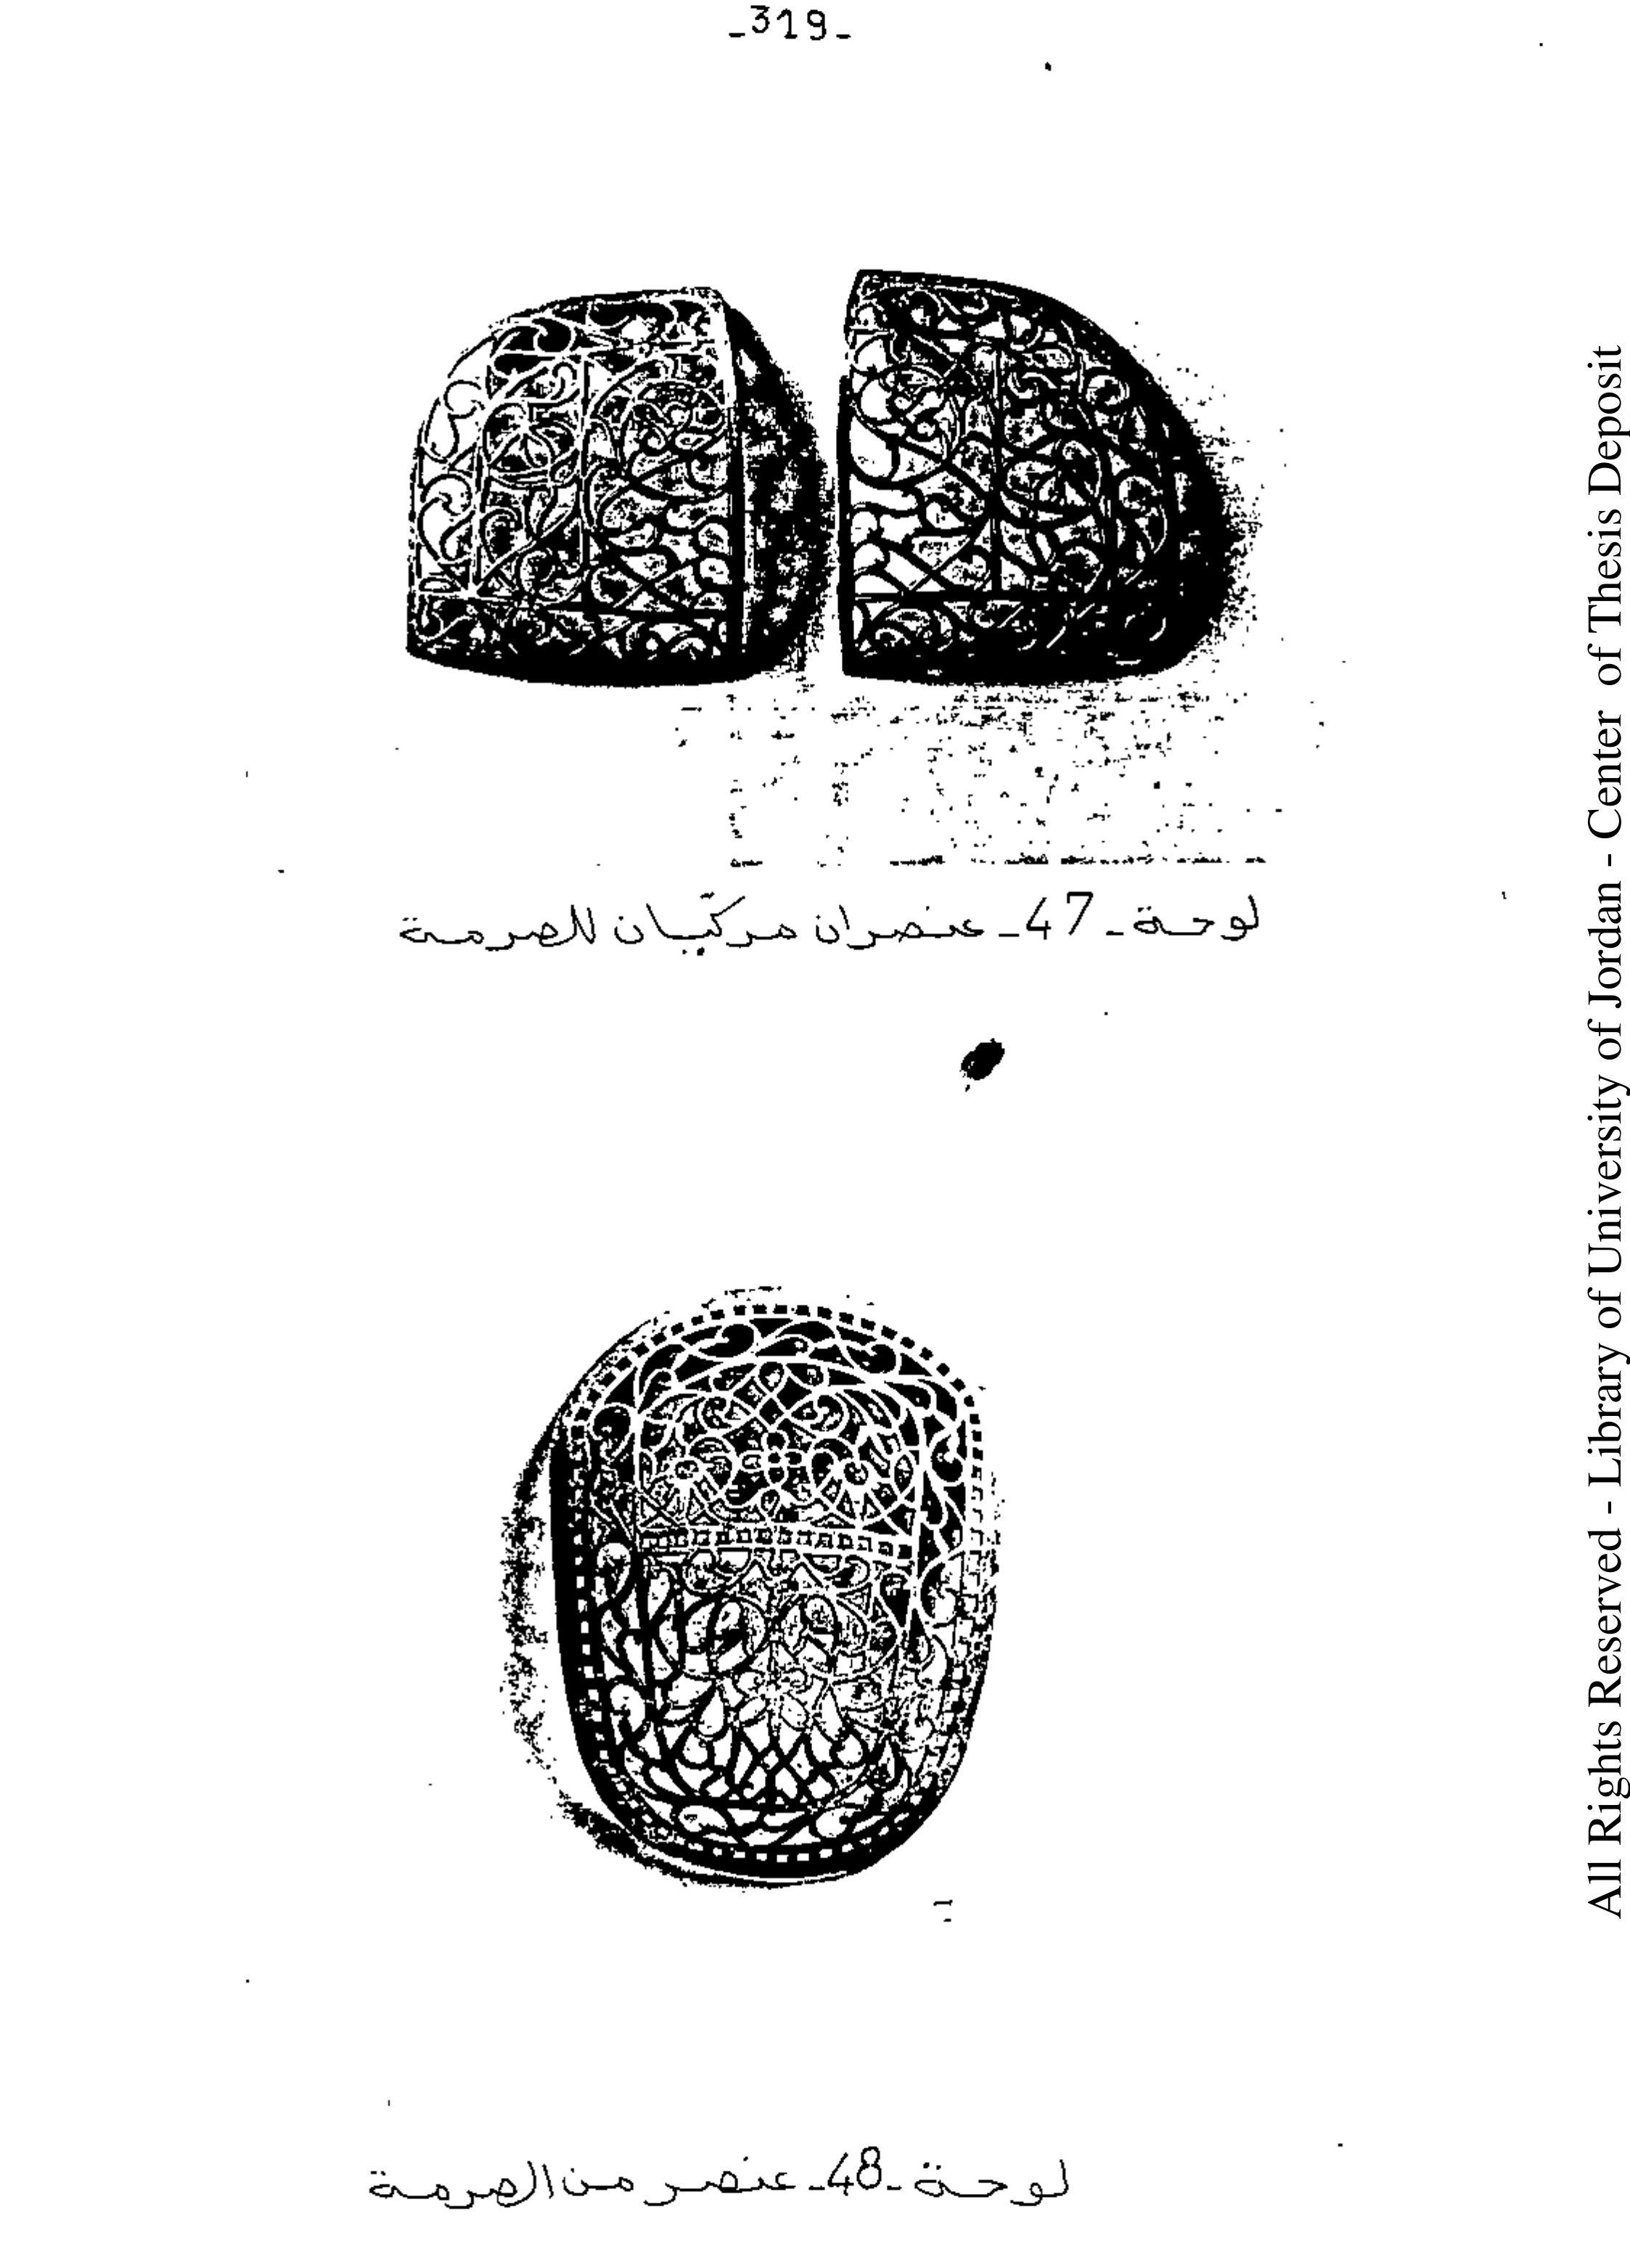 -319-
لوحة -47- عنصران مركّبان للصرمة
لوحة -48- عنصر من الصرمة
All Rights Reserved - Library of University of Jordan - Center of Thesis Deposit